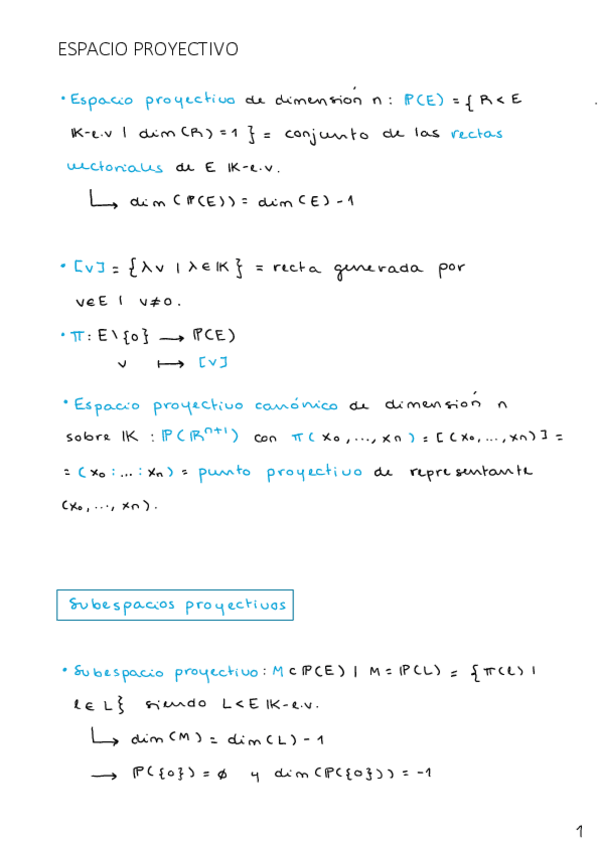 ESPACIO PROYECTIVO
• Espacio proyectivo de dimensión n: ℙ(E) = { R < E
𝕂-e.v | dim(R) = 1 } = conjunto de las rectas
vectoriales de E 𝕂-e.v.
↳ dim(ℙ(E)) = dim(E) - 1
• [v] = {λv | λ ∈ 𝕂} = recta generada por
v∈E | v≠0.
• π: E\{0} → ℙ(E)
v ↦ [v]
• Espacio proyectivo canónico de dimensión n
sobre 𝕂 : ℙ(ℝⁿ⁺¹) con π(x₀, ..., xₙ) = [(x₀, ..., xₙ)] =
= (x₀ : ... : xₙ) = punto proyectivo de representante
(x₀, ..., xₙ).
Subespacios proyectivos
• Subespacio proyectivo: M ⊂ ℙ(E) | M = ℙ(L) = {π(l) |
l ∈ L} siendo L < E 𝕂-e.v.
↳ dim(M) = dim(L) - 1
→ ℙ({0}) = ∅ y dim(ℙ({0})) = -1
1